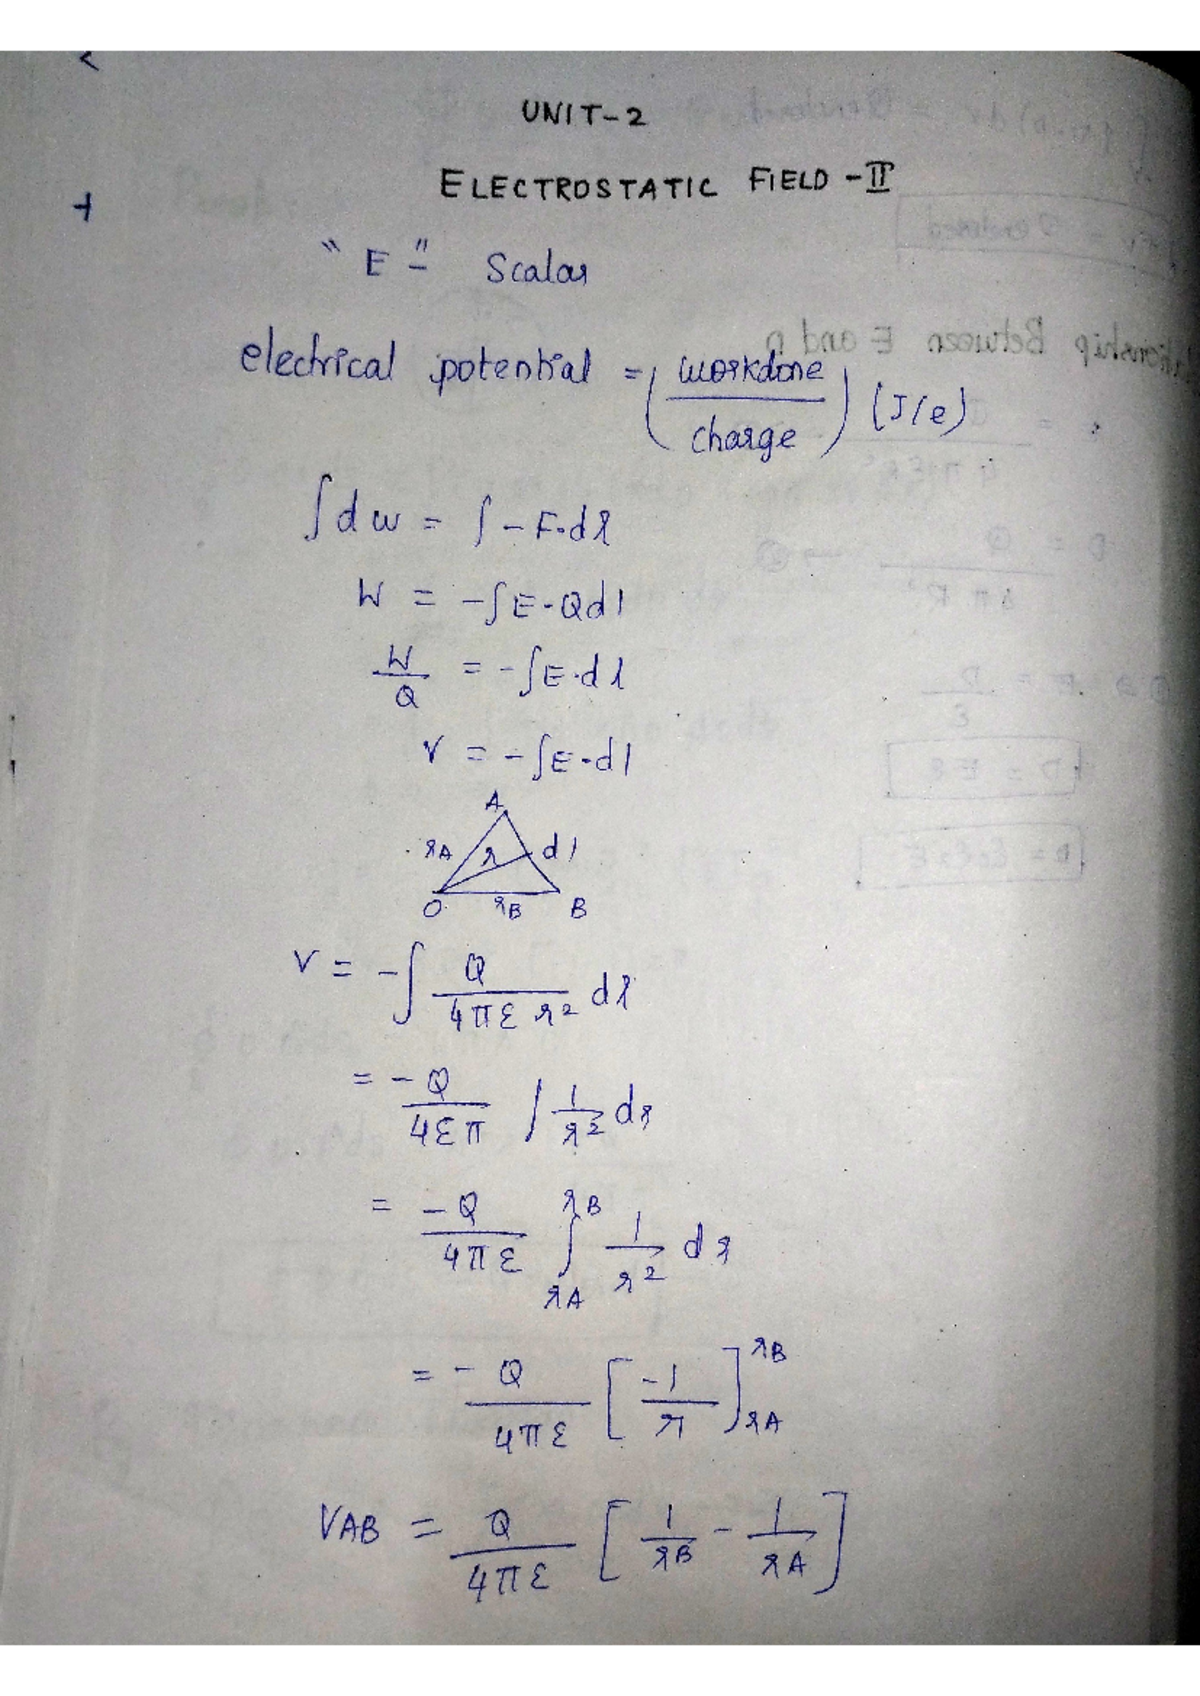 UNIT-2
ELECTROSTATIC FIELD -II
"E" - Scalar
electrical potential = (workdone / charge) (J/e)
∫dw = ∫-F.dl
W = -∫E.Qdl
W/Q = -∫E.dl
V = -∫E.dl
A
rA r dl
O rB B
V = -∫ Q / 4πε r² dr
= -Q / 4επ ∫ 1/r² dr
= -Q / 4πε ∫ rB rA 1/r² dr
= -Q / 4πε [-1/r] rB rA
VAB = Q / 4πε [1/rB - 1/rA]